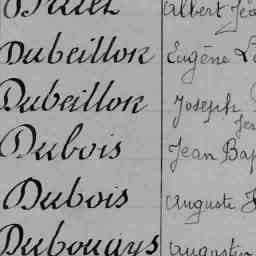 Albert Jea
Dubeillon Eugène L
Dubeillon Joseph
Jea
Dubois Jean Bap
Dubois Auguste
Dubougys Augustin